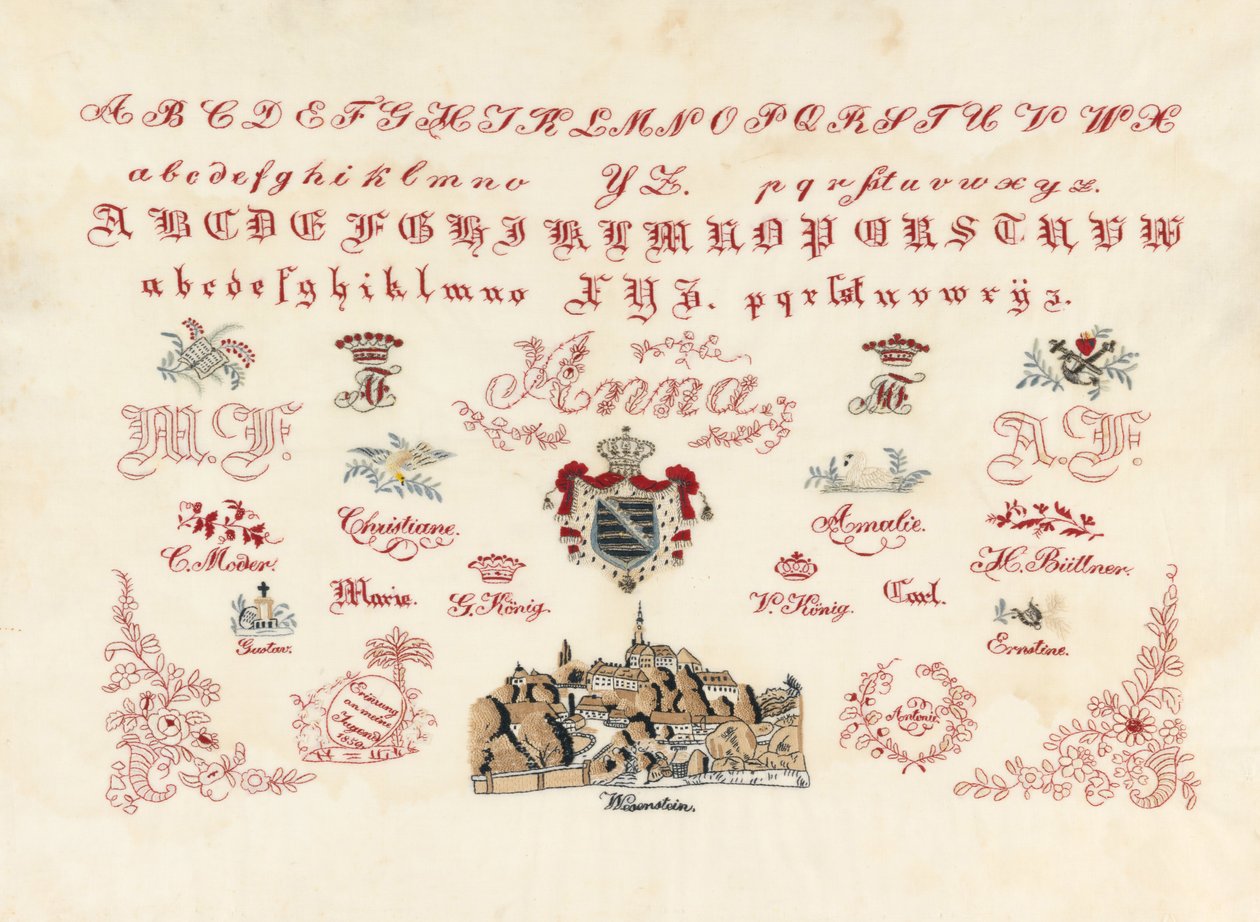 A B C D E F G H I K L M N O P Q R S T U V W X
a b c d e f g h i k l m n o Y Z. p q r ſ s t u v w x y z.
A B C D E F G H I K L M N O P Q R S T U V W
a b c d e f g h i k l m n o X Y Z. p q r ſ s t u v w x ÿ z.
Anna.
M. F.
A. F.
Christiane.
Amalie.
C. Moder.
H. Büllner.
Marie.
G. König.
V. König.
Carl.
Gustav.
Ernstine.
an meine
Jugend
1850.
Antonie
Wesenstein.